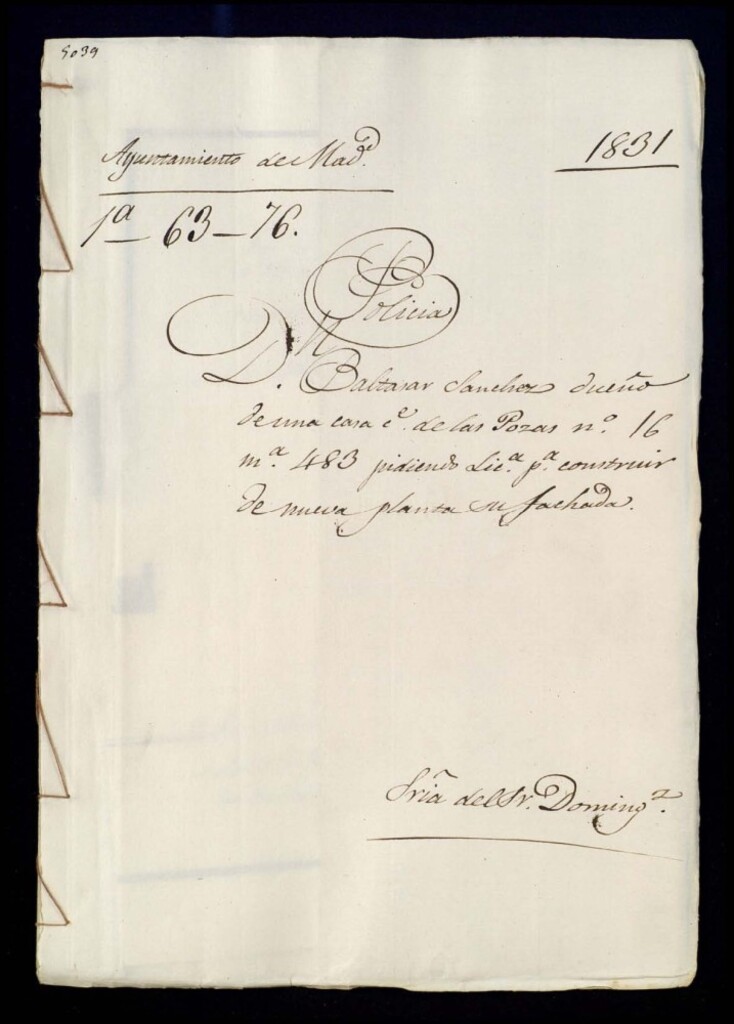 5039
Ayuntamiento de Mad.d
1831
1a 63-76.
Policia
D.n Baltasar Sanchez dueño
de una casa c.e de las Pozas n.o 16
m.a 483 pidiendo Lic.a p.a construir
de nueva planta su fachada.
Sria del Sr. Doming.z